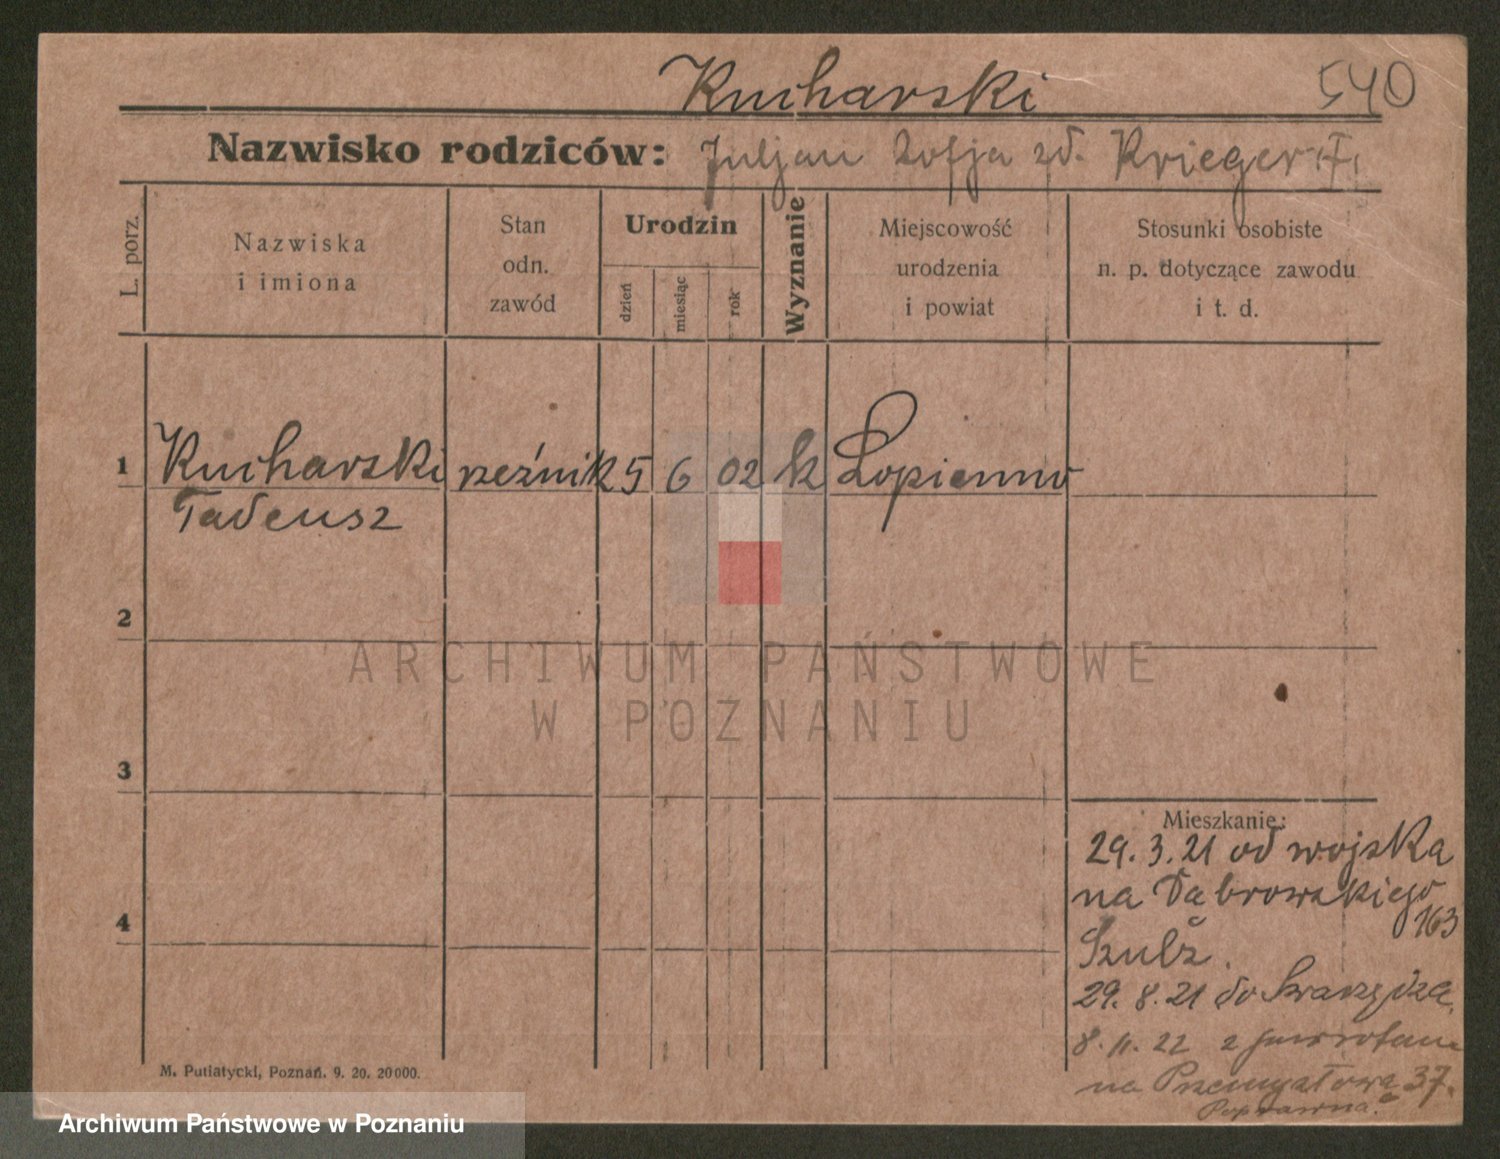 Kucharski
540
Nazwisko rodziców: Juljan Zofja zd. Krieger
L. porz.
Nazwiska
i imiona
Stan
odn.
zawód
Urodzin
dzień
miesiąc
rok
Wyznanie
Miejscowość
urodzenia
i powiat
Stosunki osobiste
n. p. dotyczące zawodu
i t. d.
1 Kucharski rzeźnik 5 6 02 k Łopienno
Tadeusz
2
ARCHIWUM PAŃSTWOWE
W POZNANIU
3
Mieszkanie:
29. 3. 21 od wojska
na Dąbrowskiego
163
Szulz.
29. 8. 21 do Swarzędza
8. 11. 22 z powrotem
na Przemysłową 37.
4
M. Putiatycki, Poznań. 9. 20. 20000.
Archiwum Państwowe w Poznaniu